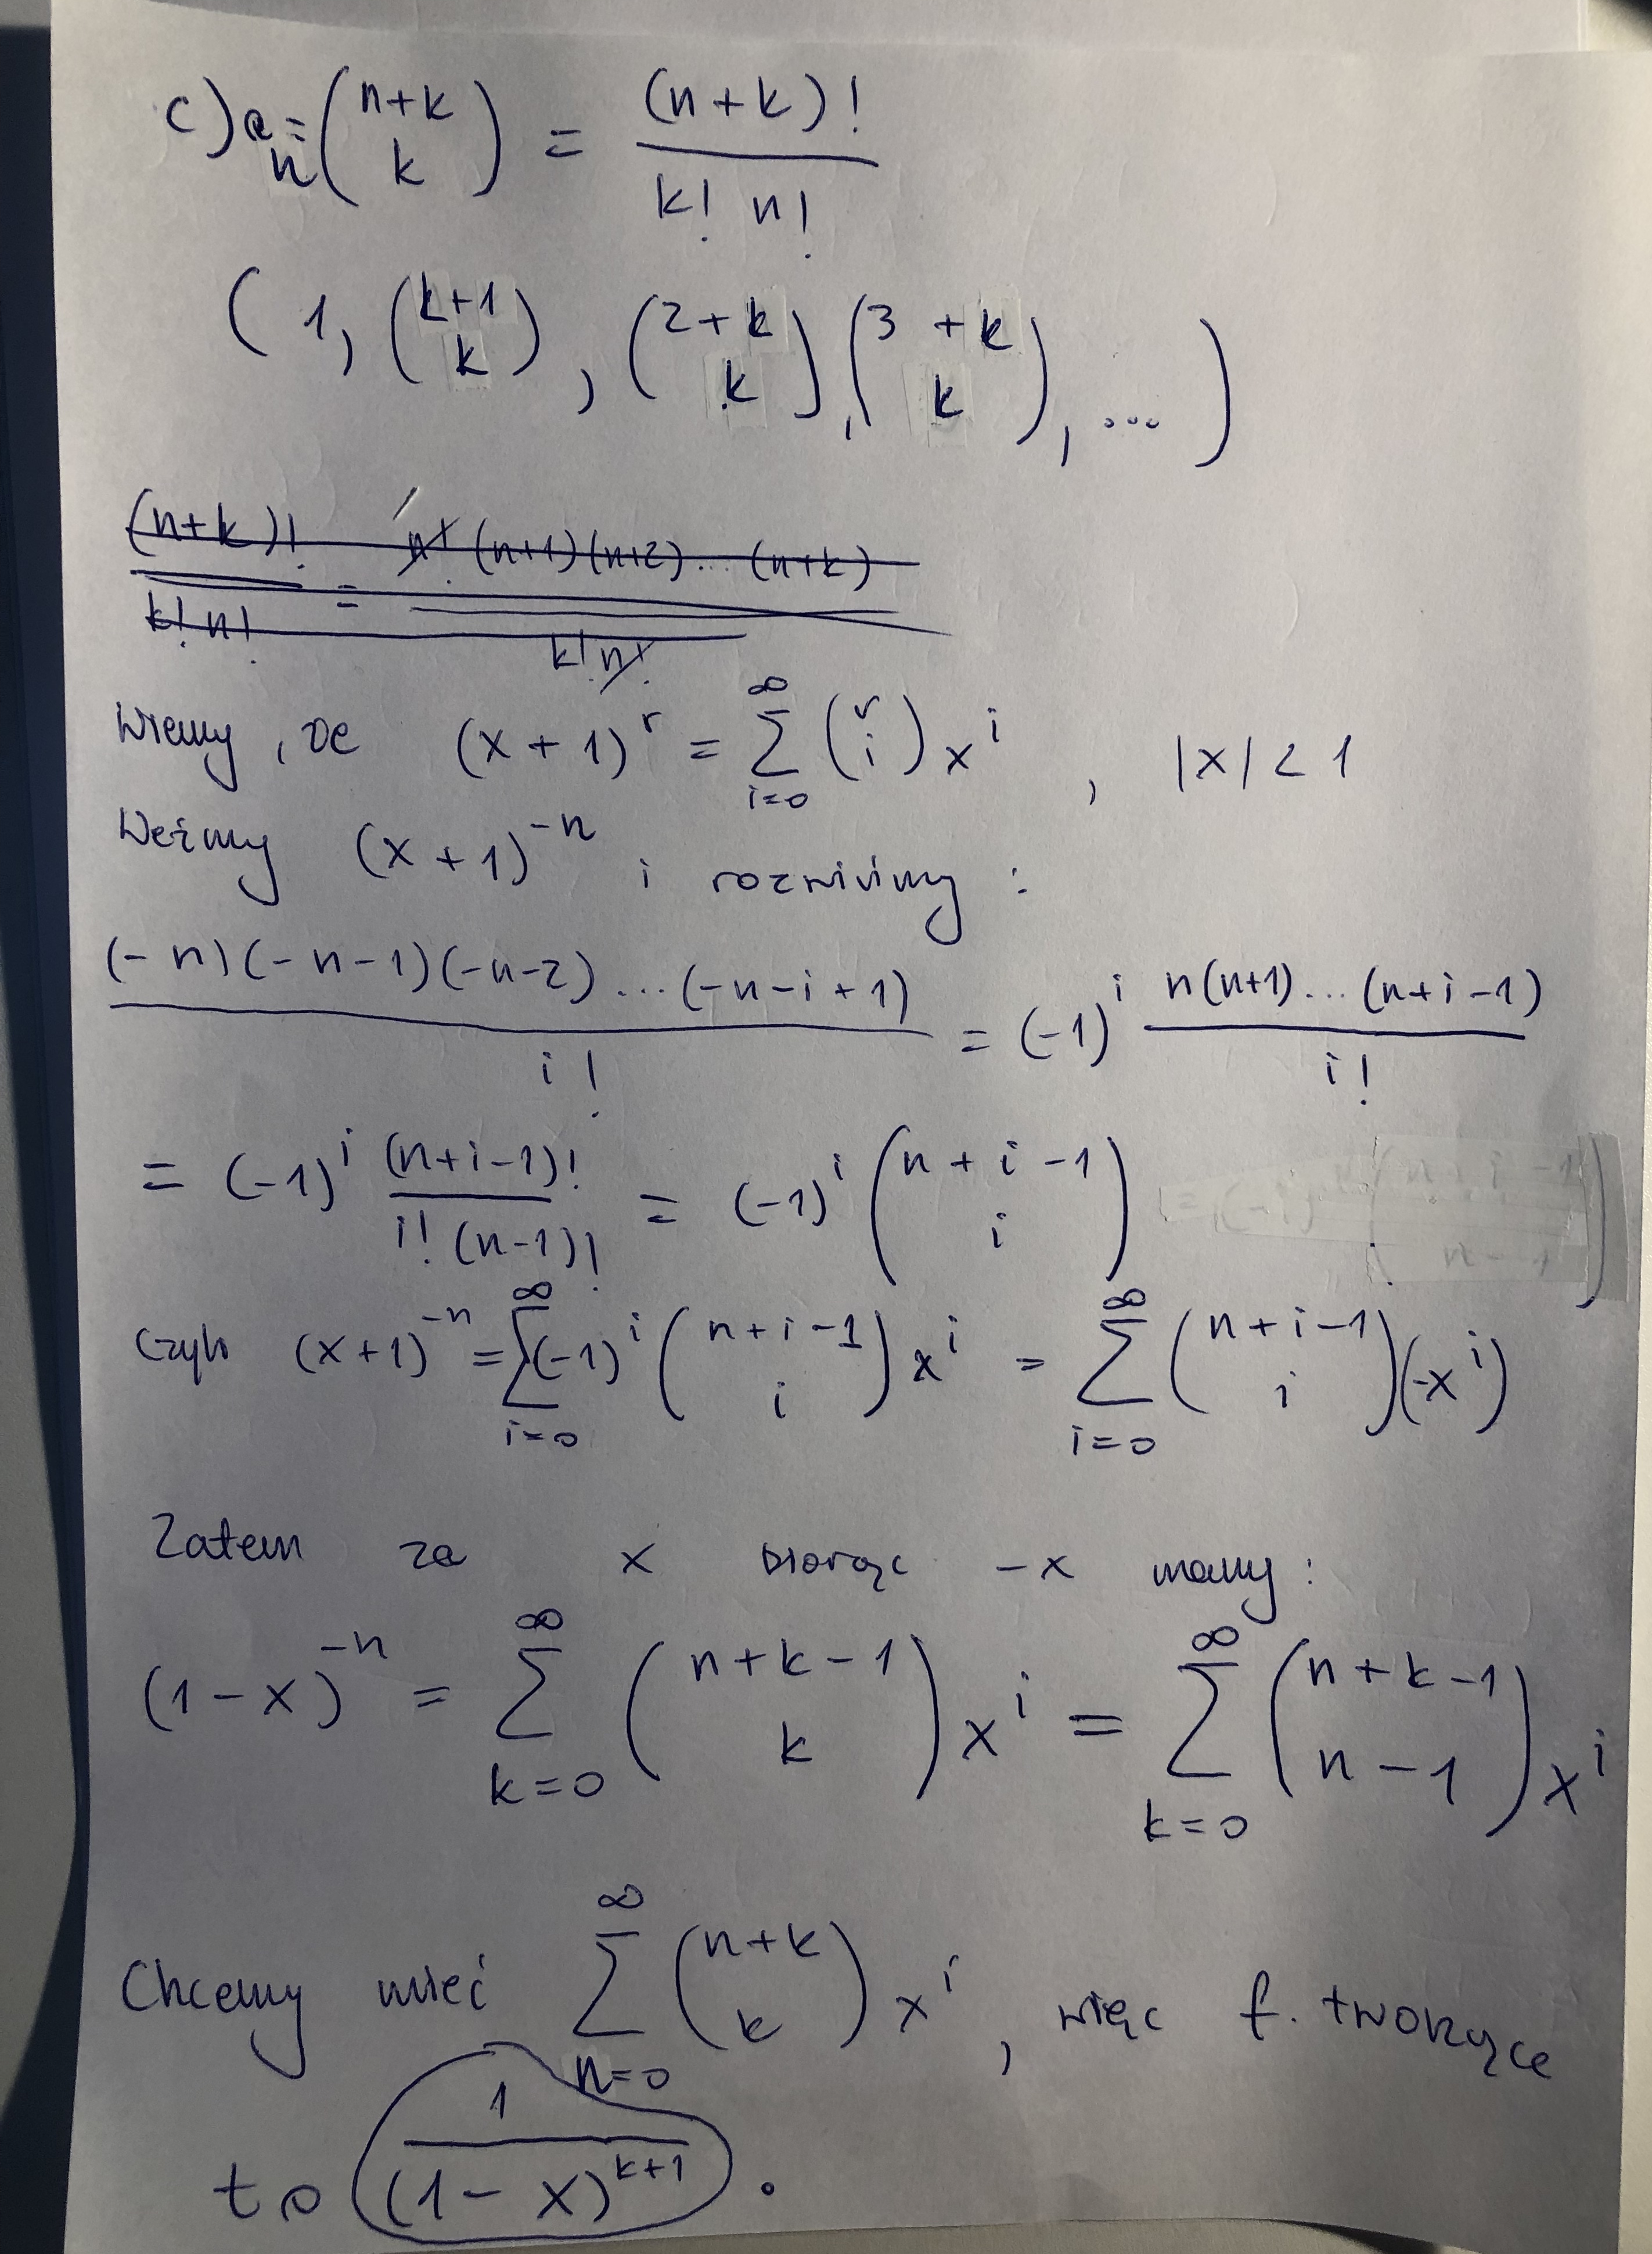 c) a_n = \binom{n+k}{k} = \frac{(n+k)!}{k! n!}
(1, \binom{k+1}{k}, \binom{2+k}{k}, \binom{3+k}{k}, ...)
\frac{(n+k)!}{k! n!} = \frac{n! (n+1)(n+2)...(n+k)}{k! n!}
Wiemy, że (x+1)^r = \sum_{i=0}^{∞} \binom{r}{i} x^i , |x| < 1
Weźmy (x+1)^{-n} i rozwińmy :
\frac{(-n)(-n-1)(-n-2)...(-n-i+1)}{i!} = (-1)^i \frac{n(n+1)...(n+i-1)}{i!}
= (-1)^i \frac{(n+i-1)!}{i! (n-1)!} = (-1)^i \binom{n+i-1}{i}
Czyli (x+1)^{-n} = \sum_{i=0}^{∞} (-1)^i \binom{n+i-1}{i} x^i = \sum_{i=0}^{∞} \binom{n+i-1}{i} (-x^i)
Zatem za x biorąc -x mamy :
(1-x)^{-n} = \sum_{k=0}^{∞} \binom{n+k-1}{k} x^i = \sum_{k=0}^{∞} \binom{n+k-1}{n-1} x^i
Chcemy mieć \sum_{n=0}^{∞} \binom{n+k}{k} x^i , więc f. tworząca
to \frac{1}{(1-x)^{k+1}} .